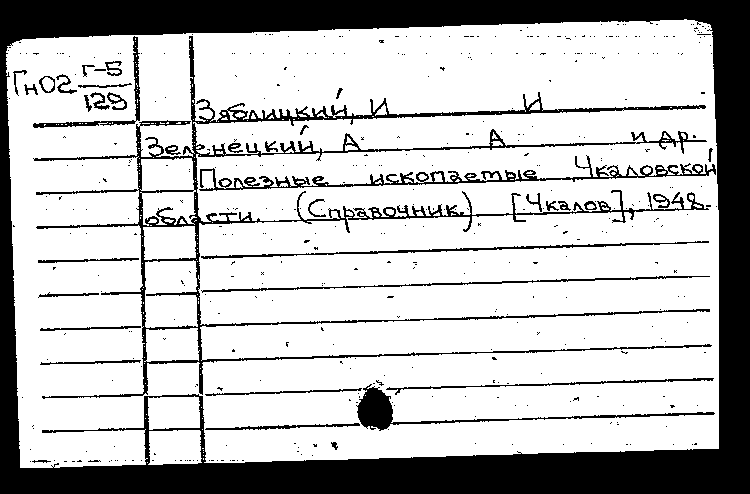 Гн02 г-5
129
Зяблицкий, И И
Зеленецкий, А А и др.
Полезные ископаемые Чкаловской
области. (Справочник.) [Чкалов], 1948.